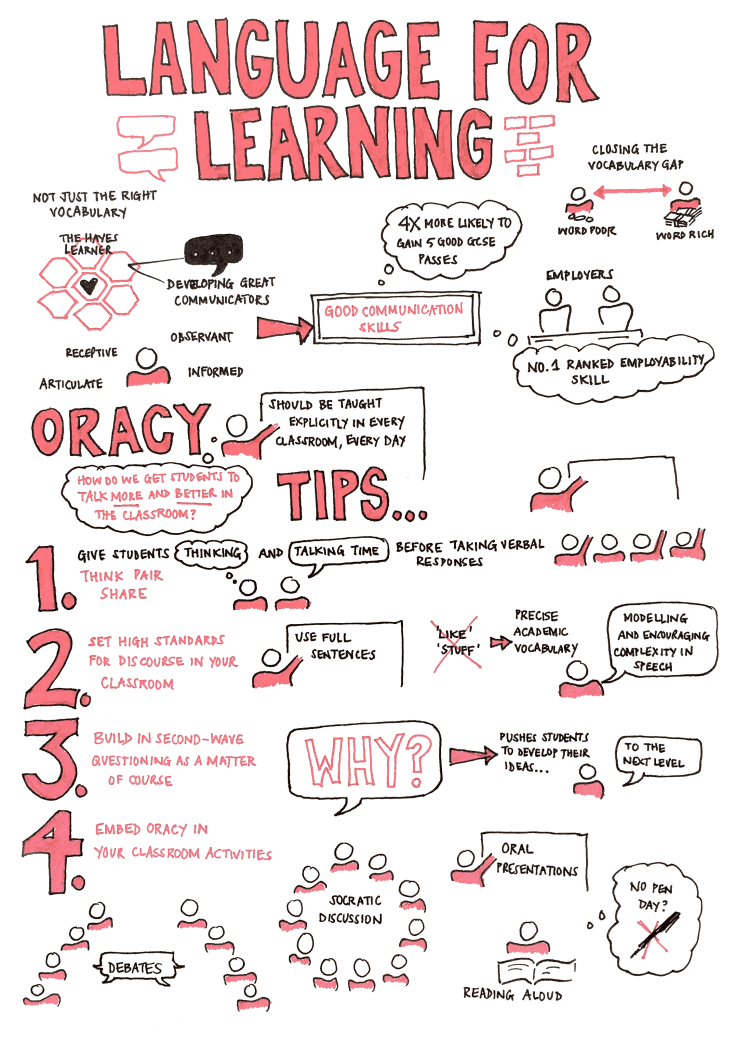 LANGUAGE FOR
LEARNING
CLOSING THE
VOCABULARY GAP
WORD POOR
WORD RICH
NOT JUST THE RIGHT
VOCABULARY
THE HAYES
LEARNER
DEVELOPING GREAT
COMMUNICATORS
4X MORE LIKELY TO
GAIN 5 GOOD GCSE
PASSES
GOOD COMMUNICATION
SKILLS
EMPLOYERS
NO.1 RANKED EMPLOYABILITY
SKILL
OBSERVANT
RECEPTIVE
INFORMED
ARTICULATE
ORACY
SHOULD BE TAUGHT
EXPLICITLY IN EVERY
CLASSROOM, EVERY DAY
HOW DO WE GET STUDENTS TO
TALK MORE AND BETTER IN
THE CLASSROOM?
TIPS...
1. GIVE STUDENTS THINKING AND TALKING TIME BEFORE TAKING VERBAL
RESPONSES
THINK PAIR
SHARE
2. SET HIGH STANDARDS
FOR DISCOURSE IN YOUR
CLASSROOM
USE FULL
SENTENCES
'LIKE'
'STUFF'
PRECISE
ACADEMIC
VOCABULARY
MODELLING
AND ENCOURAGING
COMPLEXITY IN
SPEECH
3. BUILD IN SECOND-WAVE
QUESTIONING AS A MATTER
OF COURSE
WHY?
PUSHES STUDENTS
TO DEVELOP THEIR
IDEAS...
TO THE
NEXT LEVEL
4. EMBED ORACY IN
YOUR CLASSROOM ACTIVITIES
DEBATES
SOCRATIC
DISCUSSION
ORAL
PRESENTATIONS
READING ALOUD
NO PEN
DAY?